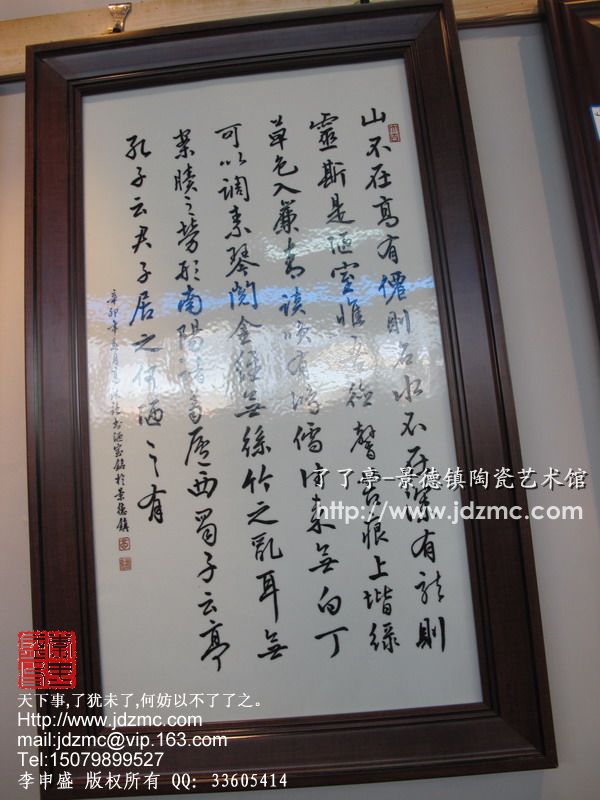 山不在高有僊則名水不在深有龍則
靈斯是陋室惟吾德馨苔痕上堦綠
草色入簾青談笑有鴻儒往來無白丁
可以調素琴閱金經無絲竹之亂耳無
案牘之勞形南陽諸葛廬西蜀子云亭
孔子云君子居之何陋之有
辛卯年
書陋室銘於景德鎮
了了亭-景德镇陶瓷艺术馆
http://www.jdzmc.com
天下事,了犹未了,何妨以不了了之。
Http://www.jdzmc.com
mail:jdzmc@vip.163.com
Tel:15079899527
李申盛 版权所有 QQ: 33605414